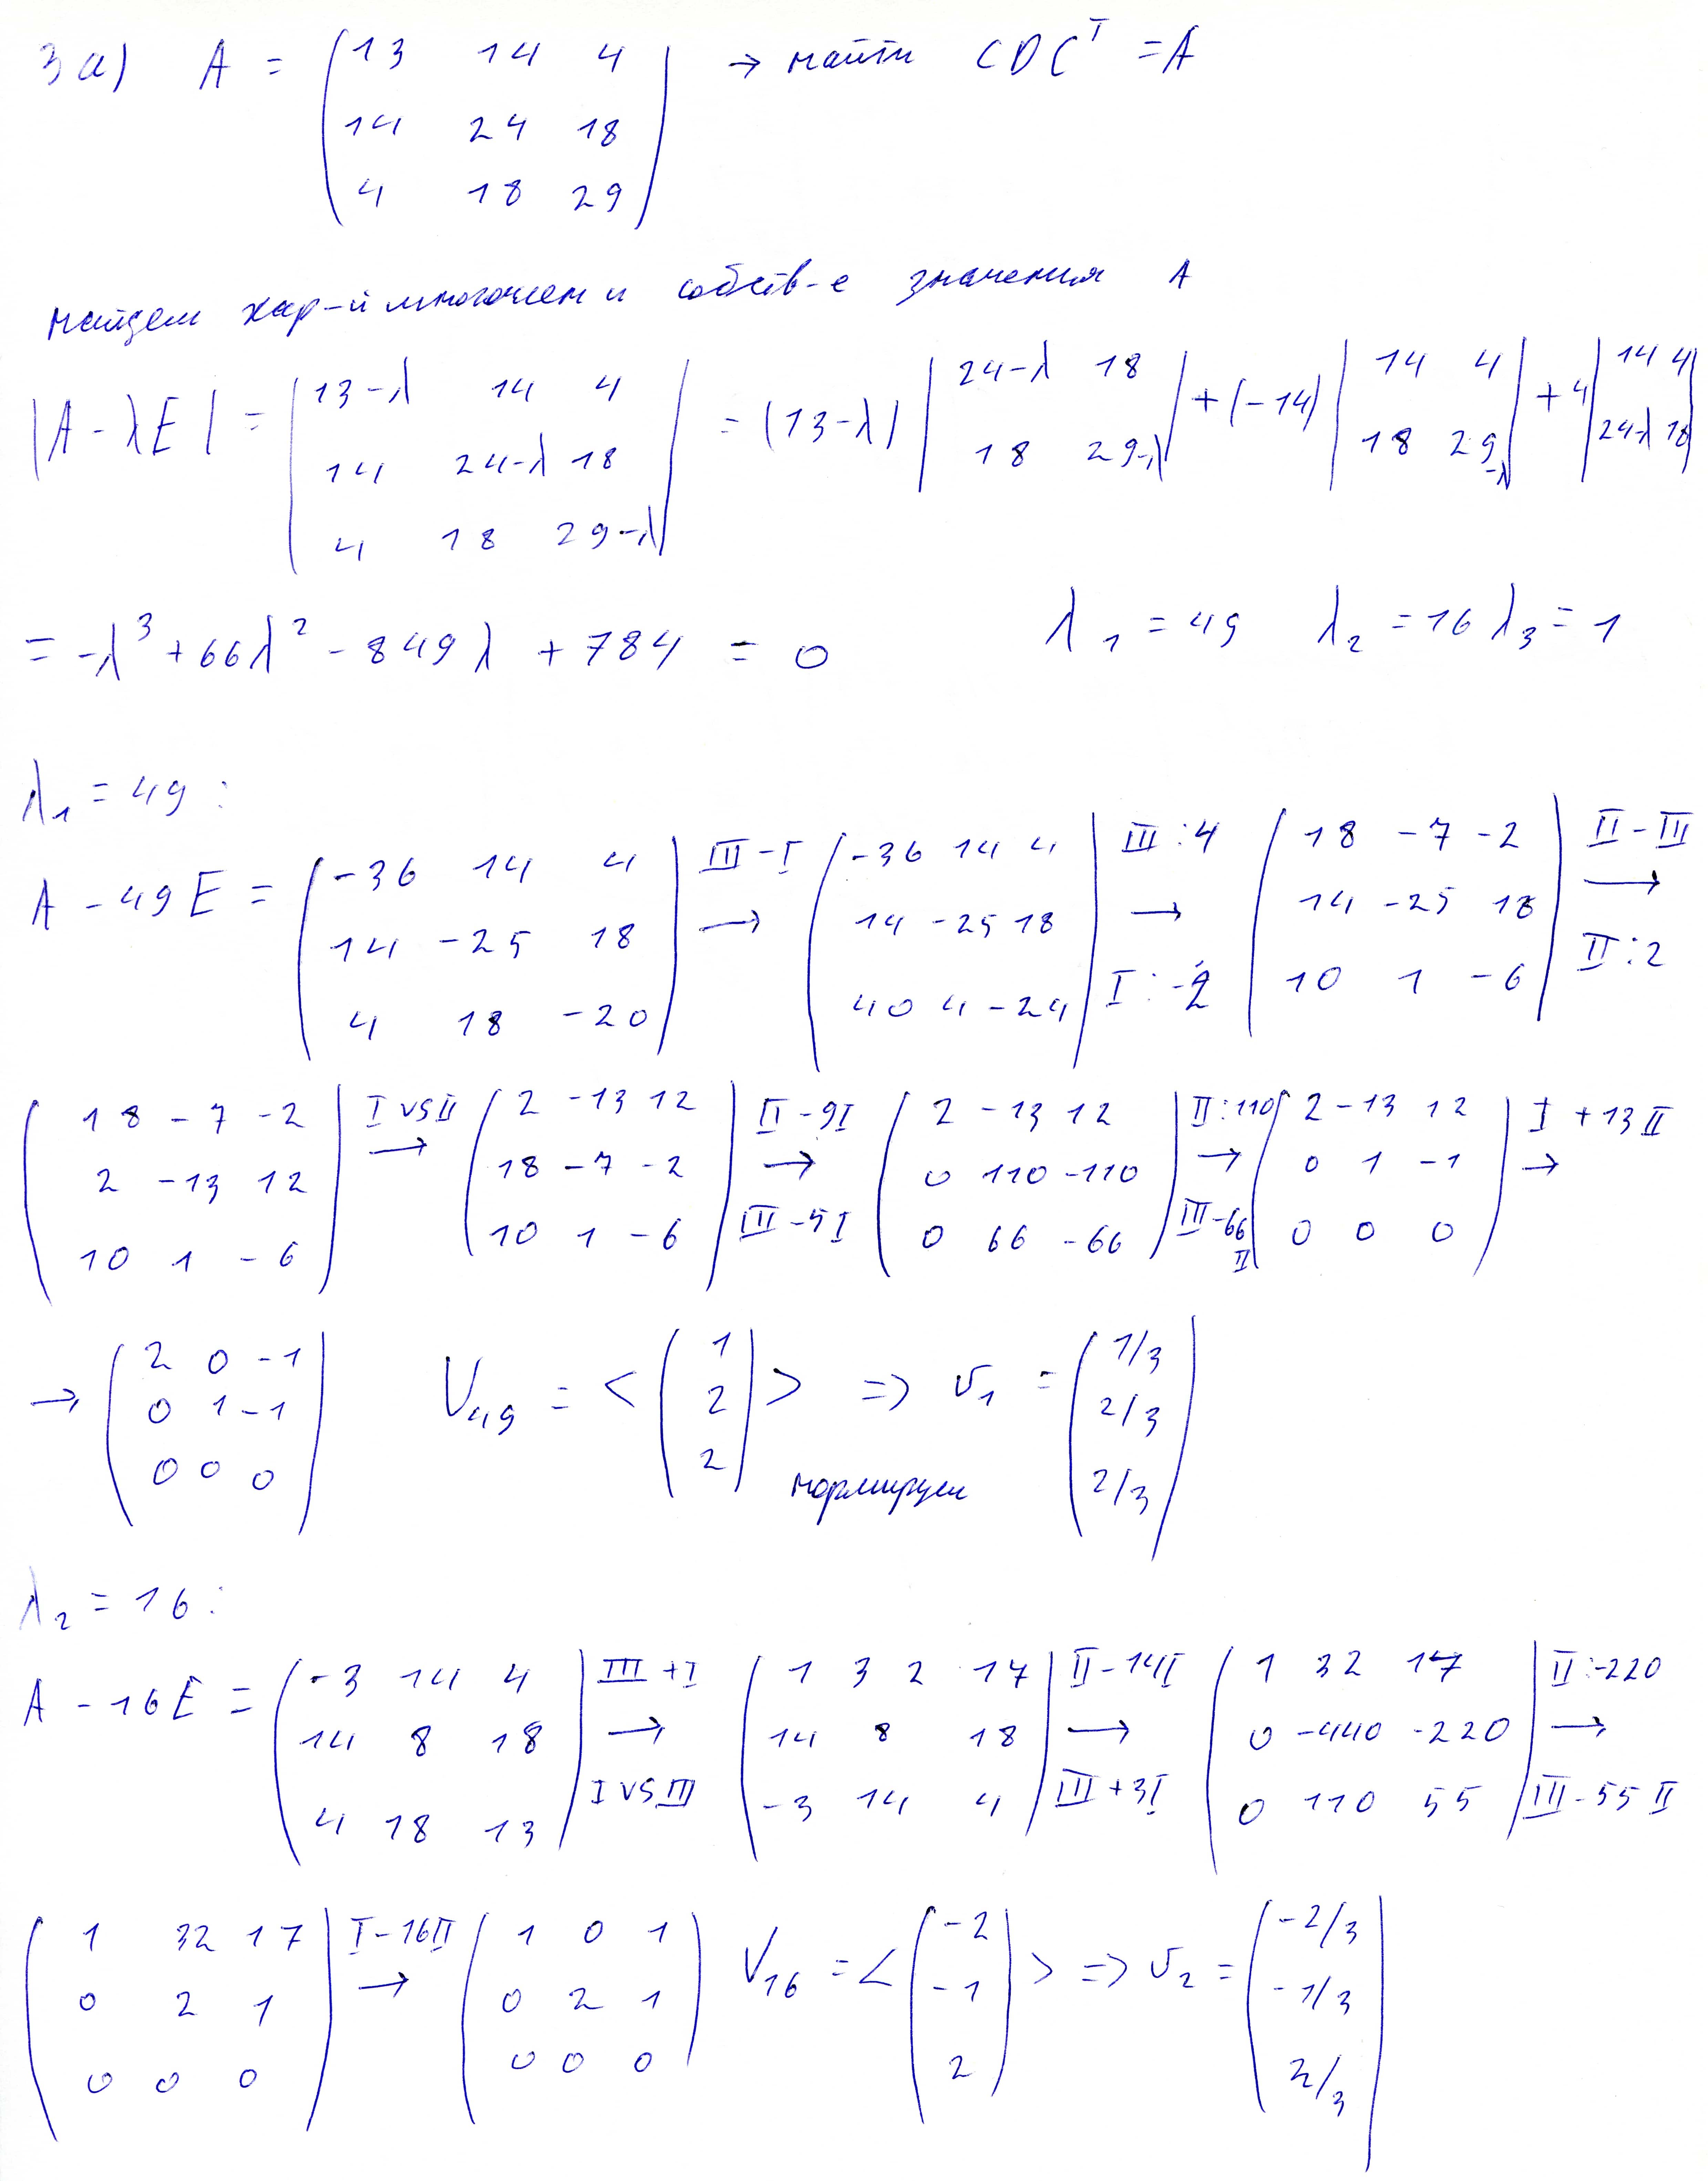 3а) A = (13 14 4 → найти CDCᵀ = A
14 24 18
4 18 29)
найдем хар-й многочлен и собств-е значения A
|A - λE| = |13-λ 14 4; 14 24-λ 18; 4 18 29-λ| = (13-λ) |24-λ 18; 18 29-λ| + (-14) |14 4; 18 29-λ| + 4 |14 4; 24-λ 18|
= -λ³ + 66λ² - 849λ + 784 = 0 λ₁ = 49 λ₂ = 16 λ₃ = 1
λ₁ = 49:
A - 49E = (-36 14 4; 14 -25 18; 4 18 -20) III - I → (-36 14 4; 14 -25 18; 40 4 -24) III : 4 → I : -2 (18 -7 -2; 14 -25 18; 10 1 -6) II - III → II : 2
(18 -7 -2; 2 -13 12; 10 1 -6) I vs II → (2 -13 12; 18 -7 -2; 10 1 -6) II - 9I → III - 5I (2 -13 12; 0 110 -110; 0 66 -66) II : 110 → III - 66 II (2 -13 12; 0 1 -1; 0 0 0) I + 13 II →
→ (2 0 -1; 0 1 -1; 0 0 0) V₄₉ = <(1; 2; 2)> => v₁ = (1/3; 2/3; 2/3)
нормируем
λ₂ = 16:
A - 16E = (-3 14 4; 14 8 18; 4 18 13) III + I → I vs III (1 32 17; 14 8 18; -3 14 4) II - 14I → III + 3I (1 32 17; 0 -440 -220; 0 110 55) II : -220 → III - 55 II
(1 32 17; 0 2 1; 0 0 0) I - 16II → (1 0 1; 0 2 1; 0 0 0) V₁₆ = <(-2; -1; 2)> => v₂ = (-2/3; -1/3; 2/3)